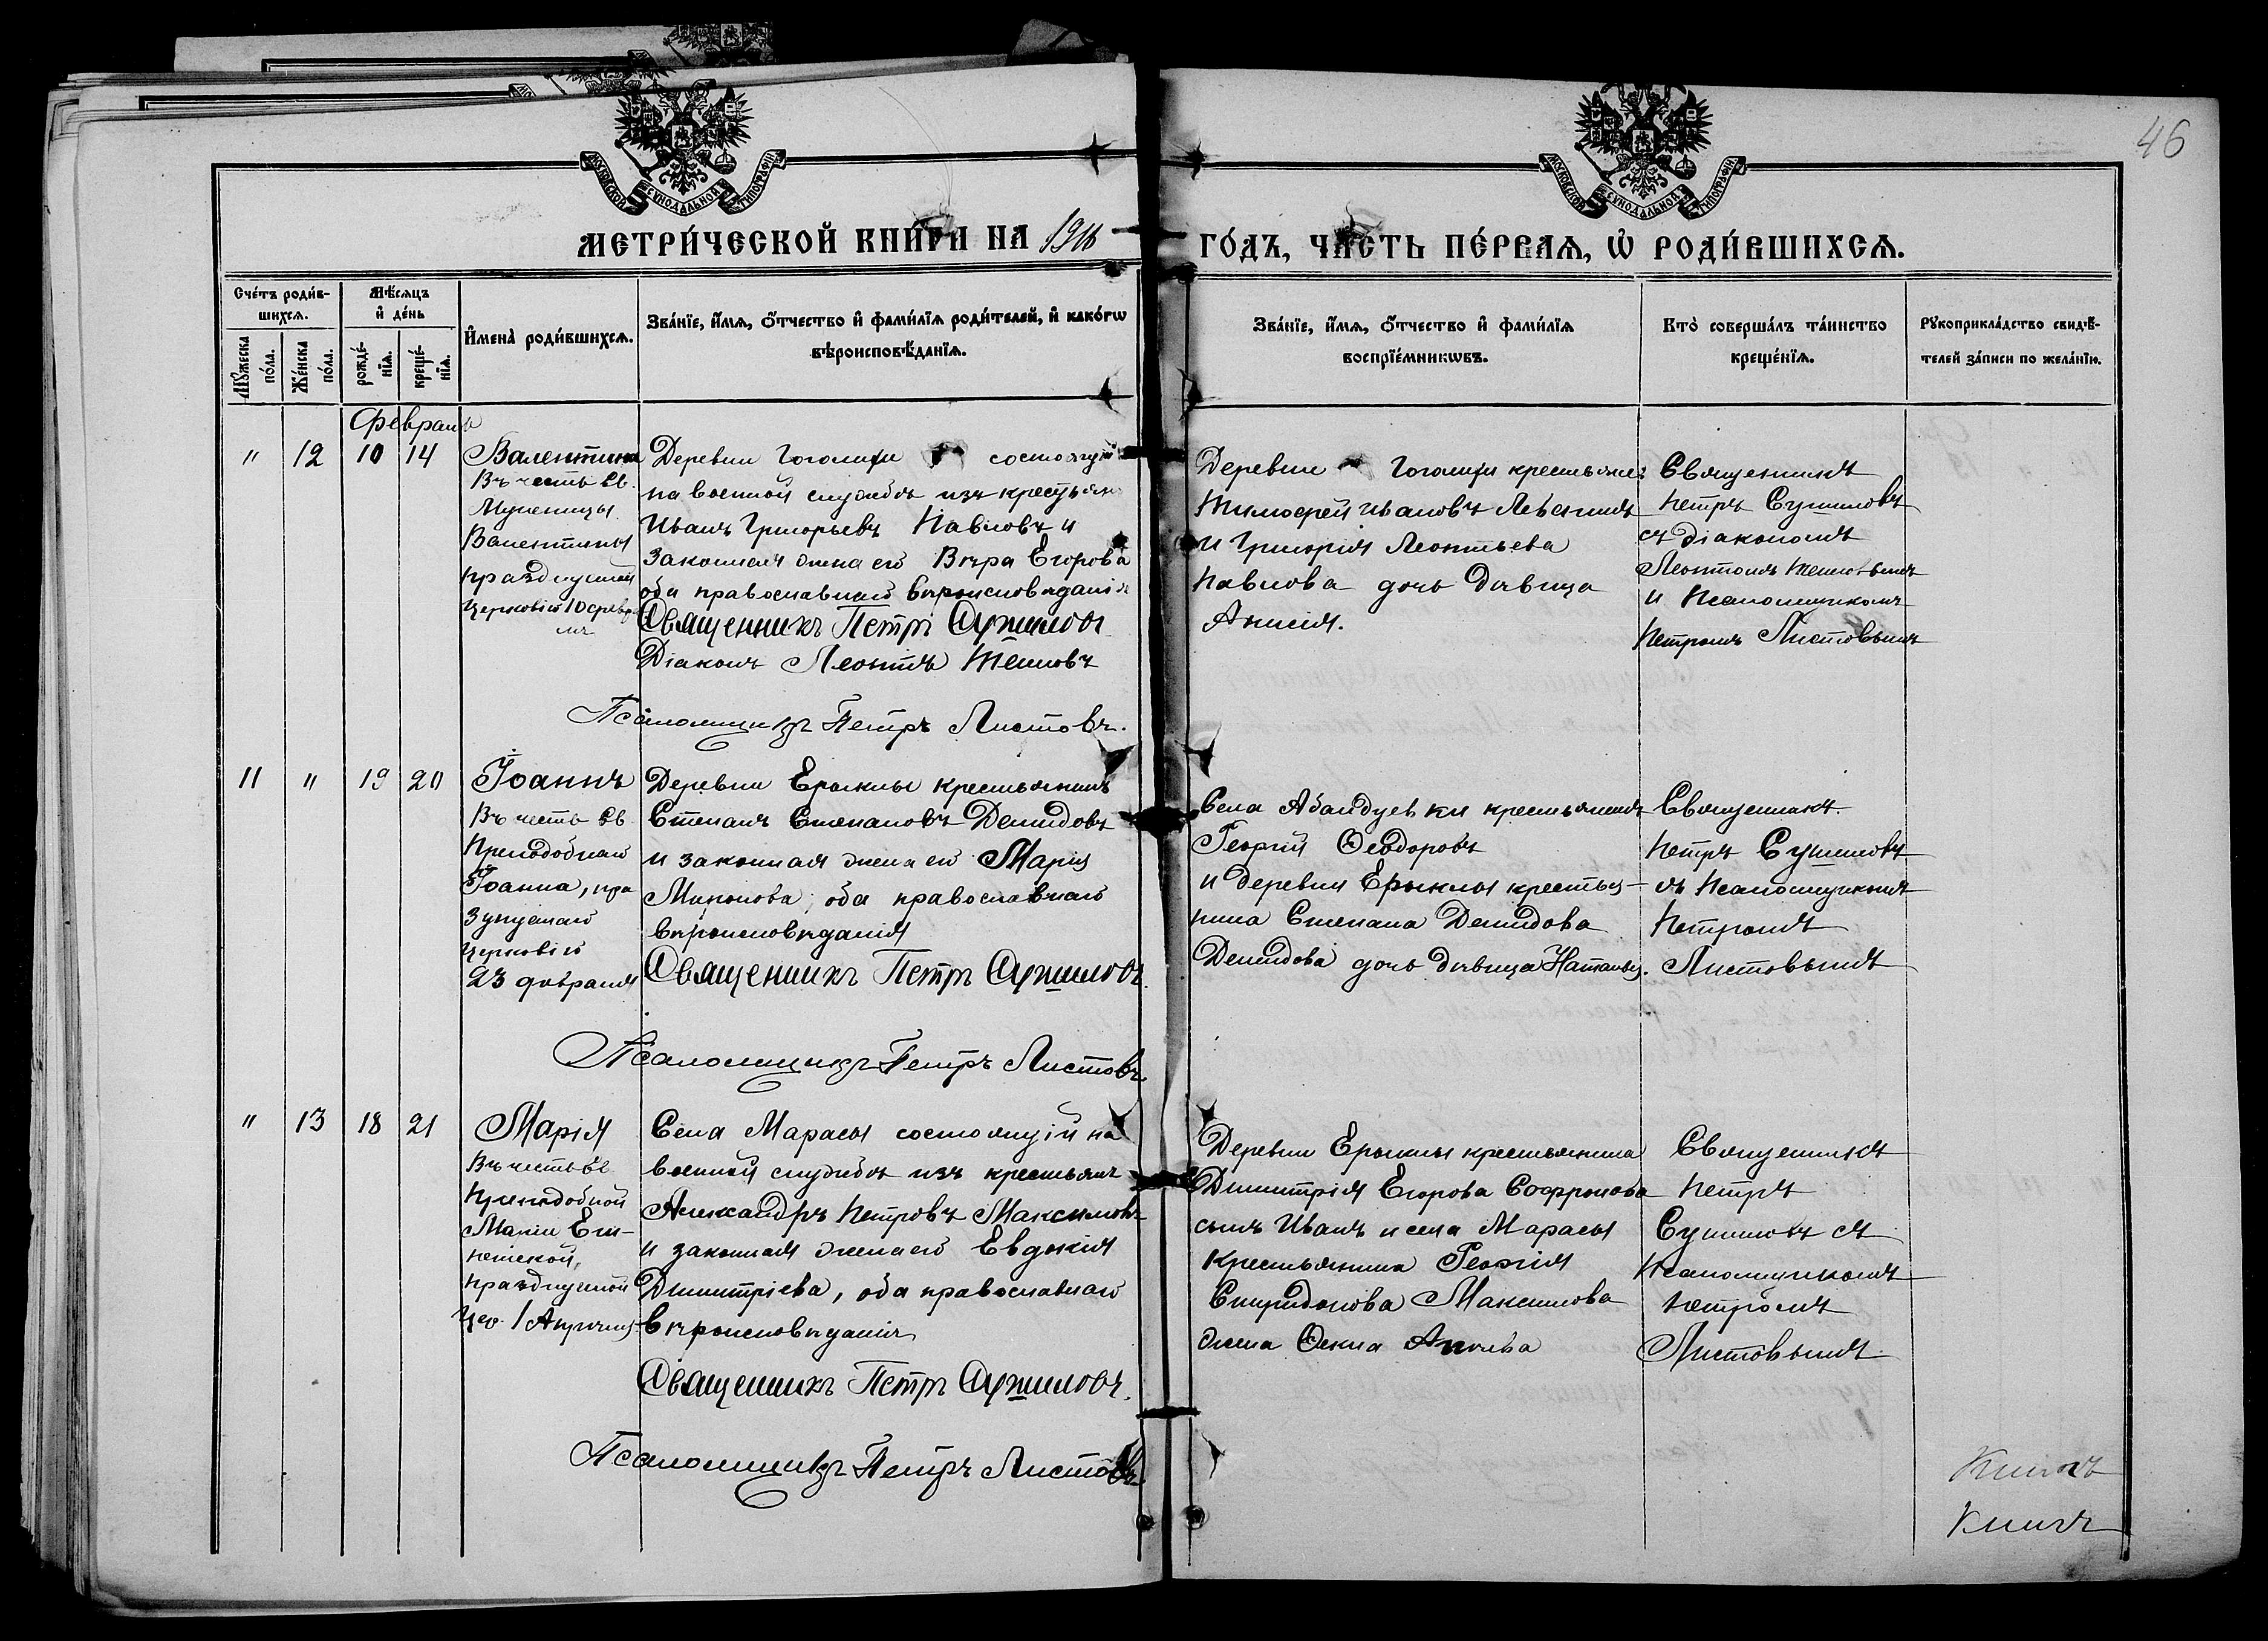 46
МОСКОВСКОЙ СѴНОДАЛЬНОЙ ТИПОГРАФІИ
МОСКОВСКОЙ СѴНОДАЛЬНОЙ ТИПОГРАФІИ
МЕТРИ́ЧЕСКОЙ КНИ́ГИ НА 1916
ГО́ДЪ, ЧА́СТЬ ПЕ́РВАЯ, Ѡ РОДИ́ВШИХСЯ.
Сче́тъ роди́в-
шихся.
Му́жеска по́ла.
Же́нска по́ла.
Мѣ́сяцъ
и де́нь
рожде́-
нія.
креще́-
нія.
Имена̀ роди́вшихся.
Зва́ніе, и́мя, о́тчество и фами́лія роди́телей, и како́гѡ
вѣроисповѣ́данія.
Зва́ніе, и́мя, о́тчество и фами́лія
воспріе́мникѡвъ.
Кто̀ соверша́лъ та́инство
креще́нія.
Рꙋкоприкла́дство свидѣ́-
телей за́писи по жела́нію.
Февраль
" 12 10 14
Валентина
Въ честь Св.
Мученицы
Валентины
празднуемой
Церковію 10 февра
ля
Деревни Гоголихи состоящій
на военной службѣ изъ крестьянъ
Иванъ Григорьевъ Павловъ и
законная жена его Вѣра Егорова
оба православнаго вѣроисповѣданія
Священникъ Петръ Сушиловъ
Діаконъ Леонтъ Темновъ
Псаломщикъ Петръ Листовъ.
Деревни Гоголихи крестьянинъ
Тимофей Ивановъ Левинъ
и Григорія Леонтьева
Павлова дочь дѣвица
Анисія.
Священникъ
Петръ Сушиловъ
съ діакономъ
и Псаломщикомъ
Петромъ Листовымъ
11 " 19 20
Іоаннъ
Въ честь Св.
Преподобнаго
Іоанна, пра
зднуемаго
Церковію
23 февраля
Деревни Ерыклы крестьянинъ
Степанъ Степановъ Демидовъ
и законная жена его Марія
Миронова, оба православнаго
вѣроисповѣданія
Священникъ Петръ Сушиловъ.
Псаломщикъ Петръ Листовъ.
Села Абалдуевки крестьянинъ
Георгій Ѳеодоровъ
и деревни Ерыклы крестья-
нина Степана Демидова
Демидова дочь дѣвица Наталья.
Священникъ
Петръ Сушиловъ
съ Псаломщикомъ
Петромъ
Листовымъ
" 13 18 21
Марія
Въ честь Св.
Преподобной
Маріи Еги-
петской,
празднуемой
Цер. 1 Апрѣля
Села Марасы состоящій на
военной службѣ изъ крестьянъ
Александръ Петровъ Максимовъ
и законная жена его Евдокія
Димитріева, оба православнаго
вѣроисповѣданія
Священникъ Петръ Сушиловъ.
Псаломщикъ Петръ Листовъ.
Деревни Ерыклы крестьянина
Димитрія Егорова Софронова
сынъ Иванъ и села Марасы
крестьянина Георгія
Спиридонова Максимова
жена Ѳекла
Священникъ
Петръ
Сушиловъ съ
Псаломщикомъ
Петромъ
Листовымъ